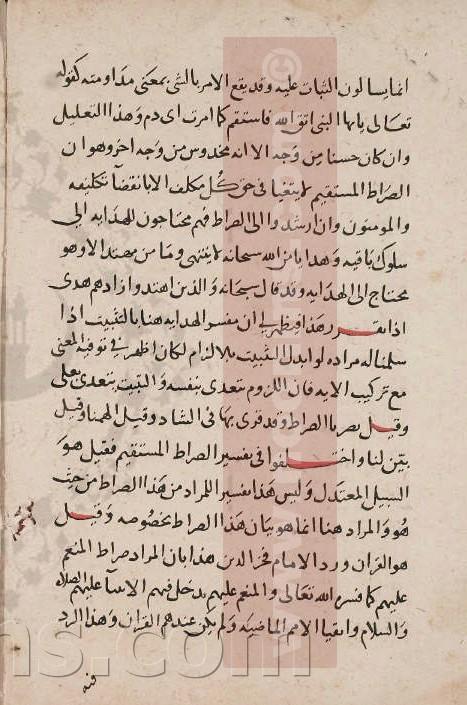 انما يسالون الثبات عليه وقد يقع الامر بالشئ بمعنى مداومته كقوله
تعالى يا ايها النبى اتق الله فاستقم كما امرت اى دم وهذا التعليل
وان كان حسنا من وجه الا انه مخدوش من وجه اخر وهو ان
الصراط المستقيم لا يتغيا فى حق كل مكلف الا بانقضآ تكليفه
والمومنون وان ارشدوا الى الصراط فهم محتاجون للهدايه الى
سلوك باقيه وهدايا من الله سبحانه لا ينتهى وما من مهتد الا وهو
محتاج الى الهدايه وقد قال سبحانه والذين اهتدوا زادهم هدى
اذا تقرر هذا فيظهر لى ان مفسر الهدايه هنا بالتثبيت اذا
سلمنا له مراده لو ابدل التثبيت بالالزام لكان اظهر فى توفية المعنى
مع تركيب الايه فان اللزوم تعدى بنفسه والتثبت يتعدى بعلى
وقيل بصرنا الصراط وقد قرى بها فى الشاد وقيل الهمنا وقيل
بين لنا واختلفوا فى تفسير الصراط المستقيم فقيل هو
السبيل المعتدل وليس هذا تفسير للمراد من هذا الصراط من حيث
هو والمراد هنا انما هو بيان هذا الصراط بخصوصه وقيل
هو القران ورد الامام فخر الدين هذا بان المراد صراط المنعم
عليهم كما فسره الله تعالى والمنعم عليهم يدخل فيهم الانبيآ عليهم الصلاه
والسلام واتقيا الامم الماضيه ولم يكن عندهم القران وهذا الرد
فيه
ns.com